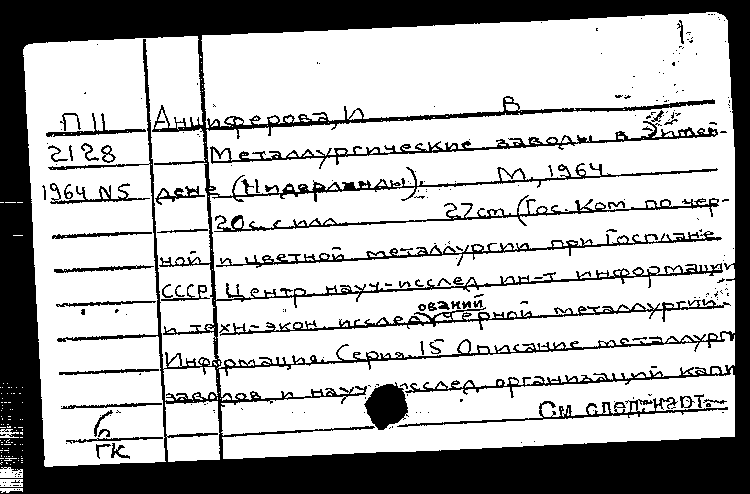 1.
П 11 Анциферова, И В
2128 Металлургические заводы в Эймей-
1964 N5 дене (Нидерланды). М., 1964.
20с. с илл. 27см. (Гос. Ком. по чер-
ной и цветной металлургии при Госплане
СССР. Центр. науч.-исслед. ин-т информации
ований
и техн-экон. исслед черной металлургии.
Информация. Серия. 15 Описание металлург
заводов и науч исслед. организаций капи
См. след. карт.
6
ГК